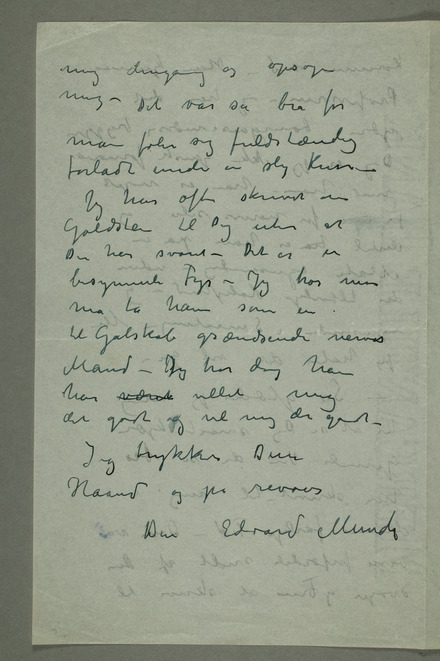 mig dengang og opsøge
mig – Det var så bra for
man føler sig fuldstændig
forladt under en slig Kur –
Jeg har ofte skrevet om
Goldstein til Dig uten at
Du har svaret – Det er en
besynderlig Fyr – Jeg tror man
må ta ham som en
til Galskab grændsende nervøs
Mand – Jeg tror dog han
har været villet mig
det godt og vil mig det godt –
Jeg trykker Din
Haand og på revoir
Din Edvard Munch